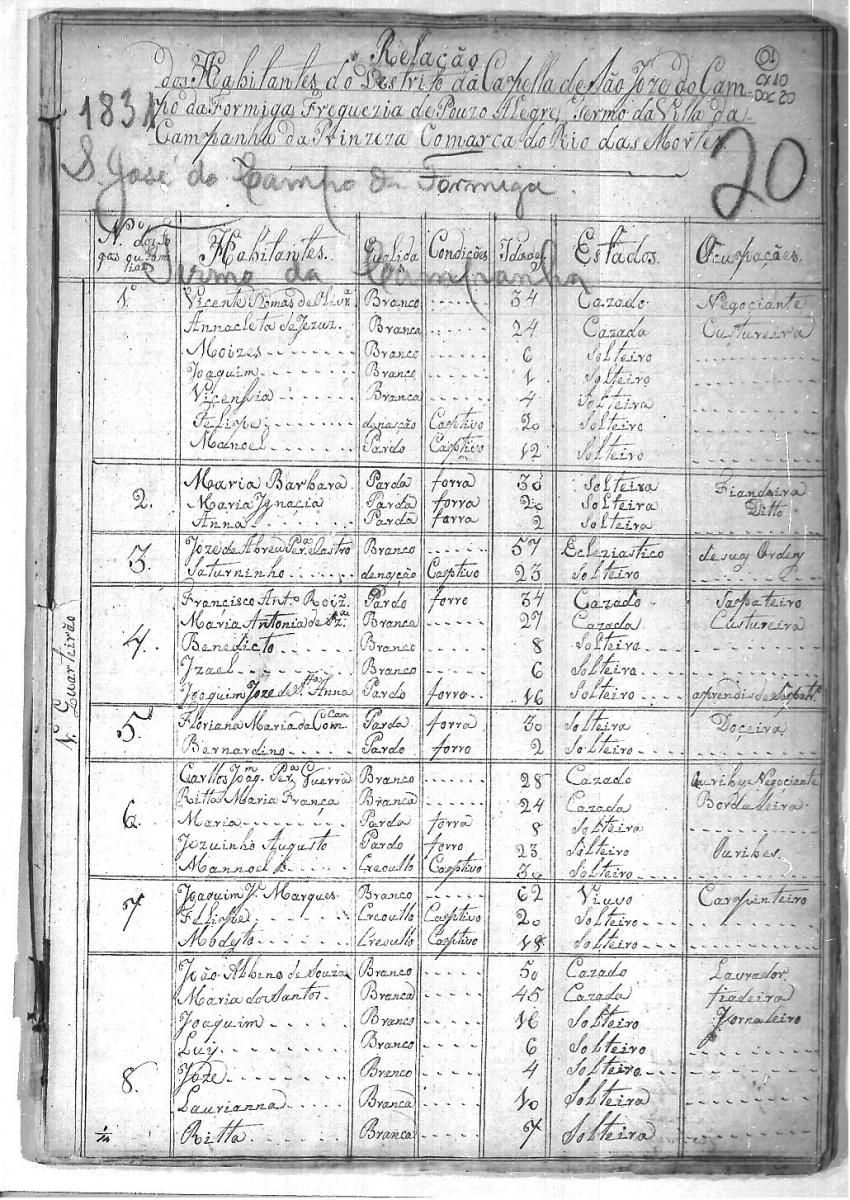 Relação
dos Habitantes do Destrito da Capella de São Joze do Cam-
po da Formiga, Freguezia de Pouzo Alegre, Termo da Villa da
Campanha da Prinzeza Comarca do Rio das Mortes
01
CX 10
DOC 20
1831
20
S. José do Campo da Formiga.
Termo da Campanha
N.º dos Fogos ou Familias Habitantes. Qualidas Condições Idades Estados. Ocupações.
N. Quarteirão
1.º Vicente Tomas de Olivrª Branco 34 Cazado Negociante
Annacleta de Jezuz. Branca 24 Cazada Custureira
Moizes Branco 6 Solteiro
Joaquim Branco 1 Solteiro
Vicensia Branca 4 Solteira
Felipe denação Captivo 20 Solteiro
Manoel Pardo Captivo 12 Solteiro
2. Maria Barbara Parda forra 30 Solteira Fiandeira
Maria Ignacia Parda forra 20 Solteira Ditto
Anna Parda farra 2 Solteira
3. Joze de Abreu Perª Castro Branco 57 Ecleziastico de suas Ordens
Saturninho denação Captivo 23 Solteiro
4. Francisco Antº Roiz Pardo forro 34 Cazado Sapateiro
Maria Antonia de Branca 27 Cazada Custureira
Benedicto Branco 8 Solteiro
Izael Branco 6 Solteiro
Joaquim Joze de Stª Anna Pardo forro 16 Solteiro aprendis de Sapatrº
5. Floriana Maria da Parda forra 30 Solteira Doçeira
Bernardino Pardo forro 2 Solteiro
6. Carllos Joaqm Perª Guerra Branco 28 Cazado Ouribes Negociante
Ritta Maria França Branca 24 Cazada Bordadeira
Maria Parda forra 8 Solteira
Jezuinho Augusto Pardo forro 23 Solteiro Ouribes
Mannoel Creoullo Captivo 30 Solteiro
7 Joaquim Je Marques Branco 62 Viuvo Carpinteiro
Felippe Creoullo Captivo 20 Solteiro
Modyto Creoullo Captivo 18 Solteiro
8. João Albino de Souza Branco 50 Cazado Laurador
Maria dos Santos Branca 45 Cazada fiadeira
Joaquim Branco 16 Solteiro Jornaleiro
Luiz Branco 6 Solteiro
Joze Branco 4 Solteiro
Laurianna Branca 10 Solteira
Ritta Branca 7 Solteira